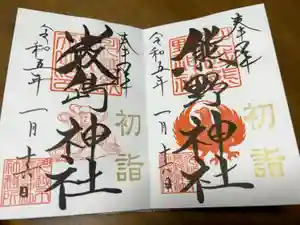 奉拝
初詣
熊野神社
令和五年
一月十六日
奉拝
初詣
厳島神社
令和五年
一月十六日